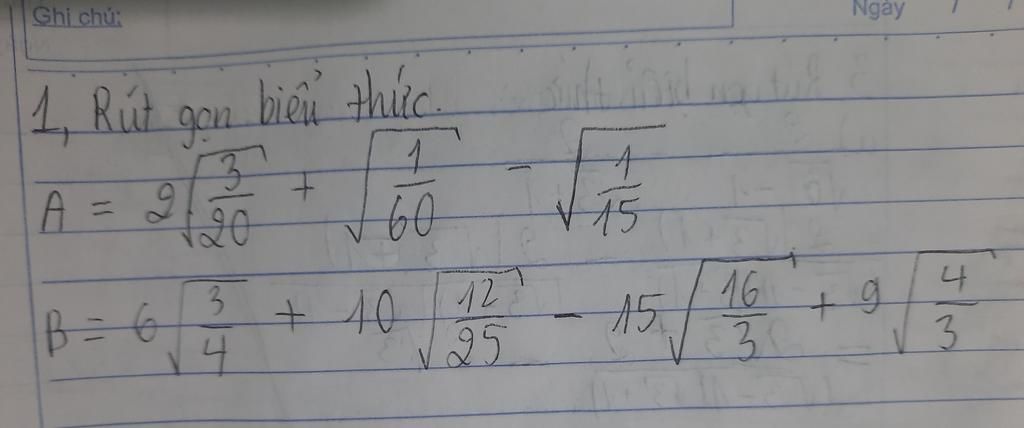 Ghi chú: Ngày / /
1, Rút gọn biểu thức.
A = 2√(3/20) + √(1/60) - √(1/15)
B = 6√(3/4) + 10√(12/25) - 15√(16/3) + 9√(4/3)